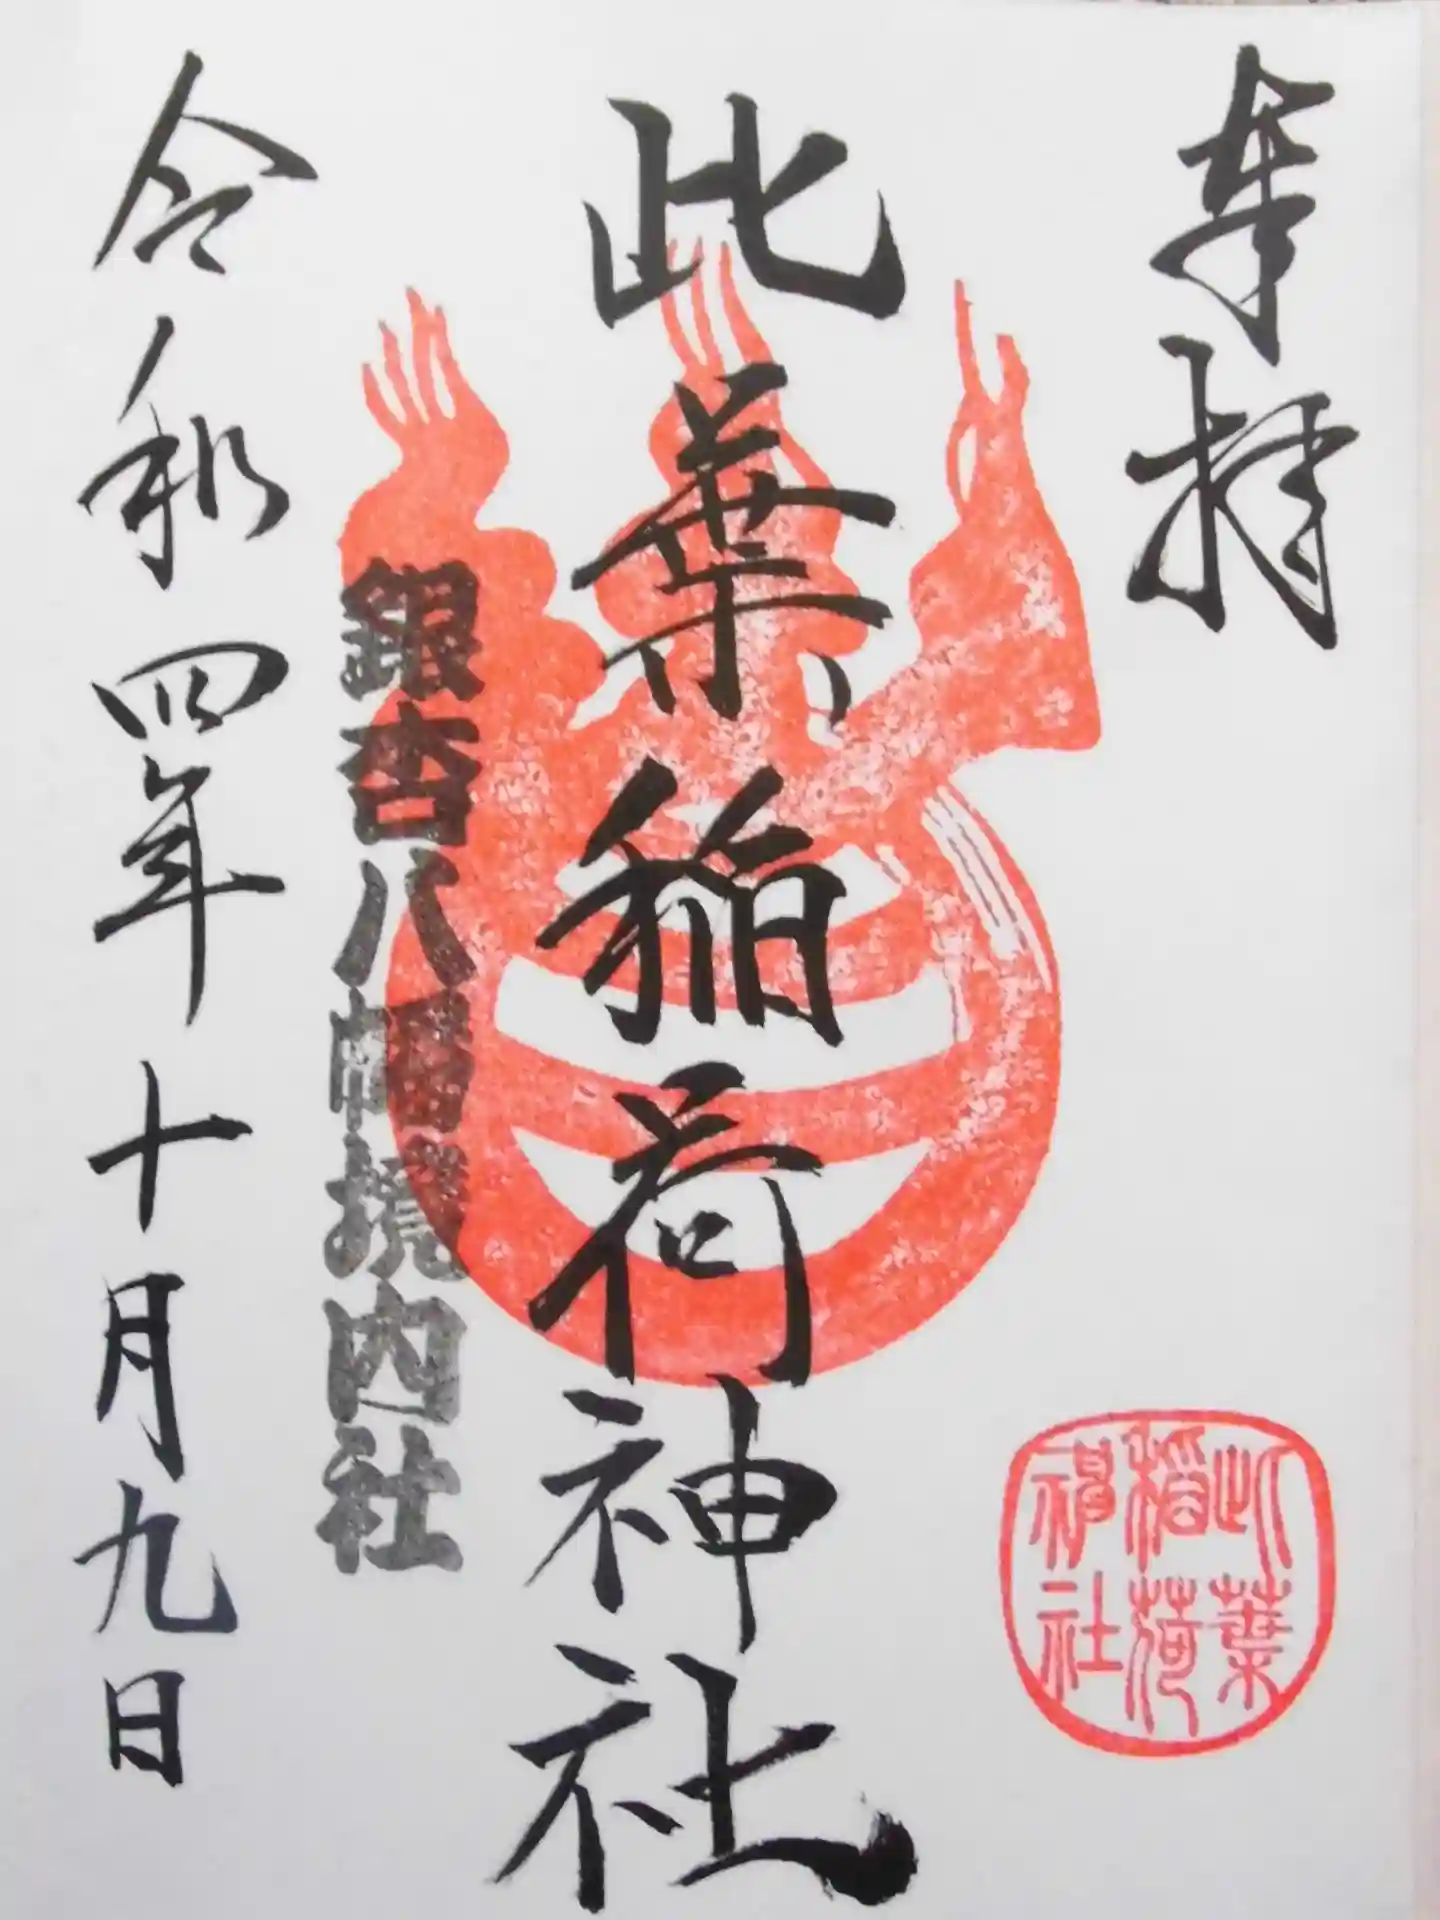 奉拝
此葉稲荷神社
此葉
稲荷
神社
銀杏八幡境内社
令和四年十月九日